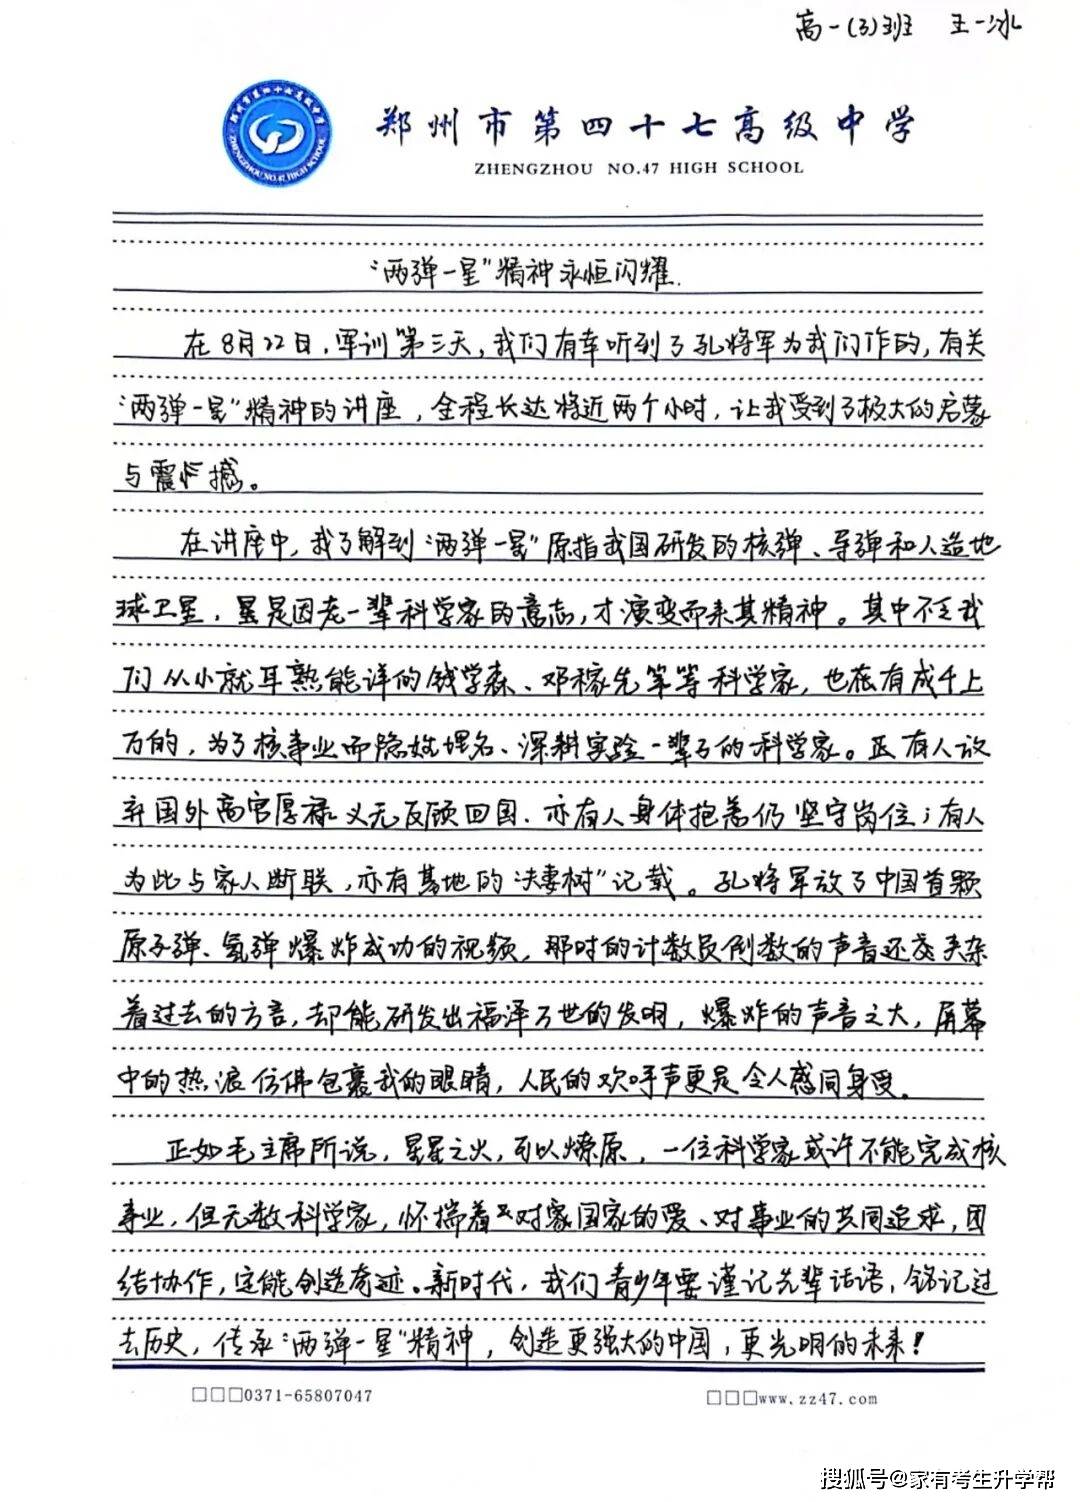 高一(3)班 王一冰
郑州市第四十七高级中学
ZHENGZHOU NO.47 HIGH SCHOOL
郑州市第四十七高级中学
ZHENGZHOU NO.47 HIGH SCHOOL
“两弹一星”精神永恒闪耀.
在8月22日,军训第三天,我们有幸听到了孔将军为我们作的,有关
“两弹一星”精神的讲座,全程长达将近两个小时,让我受到了极大的启蒙
与震撼。
在讲座中,我了解到“两弹一星”原指我国研发的核弹、导弹和人造地
球卫星,是因老一辈科学家的意志,才演变而来其精神。其中不乏我
们从小就耳熟能详的钱学森、邓稼先等等科学家,也有成千上
万的,为了核事业而隐姓埋名、深耕实验一辈子的科学家。有人放
弃国外高官厚禄义无反顾回国,亦有人身体抱恙仍坚守岗位;有人
为此与家人断联,亦有基地的“夫妻树”记载。孔将军放了中国首颗
原子弹、氢弹爆炸成功的视频,那时的计数员倒数的声音还夹杂
着过去的方言,却能研发出福泽万世的发明,爆炸的声音之大,屏幕
中的热浪仿佛包裹我的眼睛,人民的欢呼声更是令人感同身受。
正如毛主席所说,星星之火,可以燎原,一位科学家或许不能完成核
事业,但无数科学家,怀揣着对国家的爱、对事业的共同追求,团
结协作,定能创造奇迹。新时代,我们青少年要谨记先辈话语,铭记过
去历史,传承“两弹一星”精神,创造更强大的中国,更光明的未来!
□□□0371-65807047
□□□www.zz47.com
搜狐号@家有考生升学帮